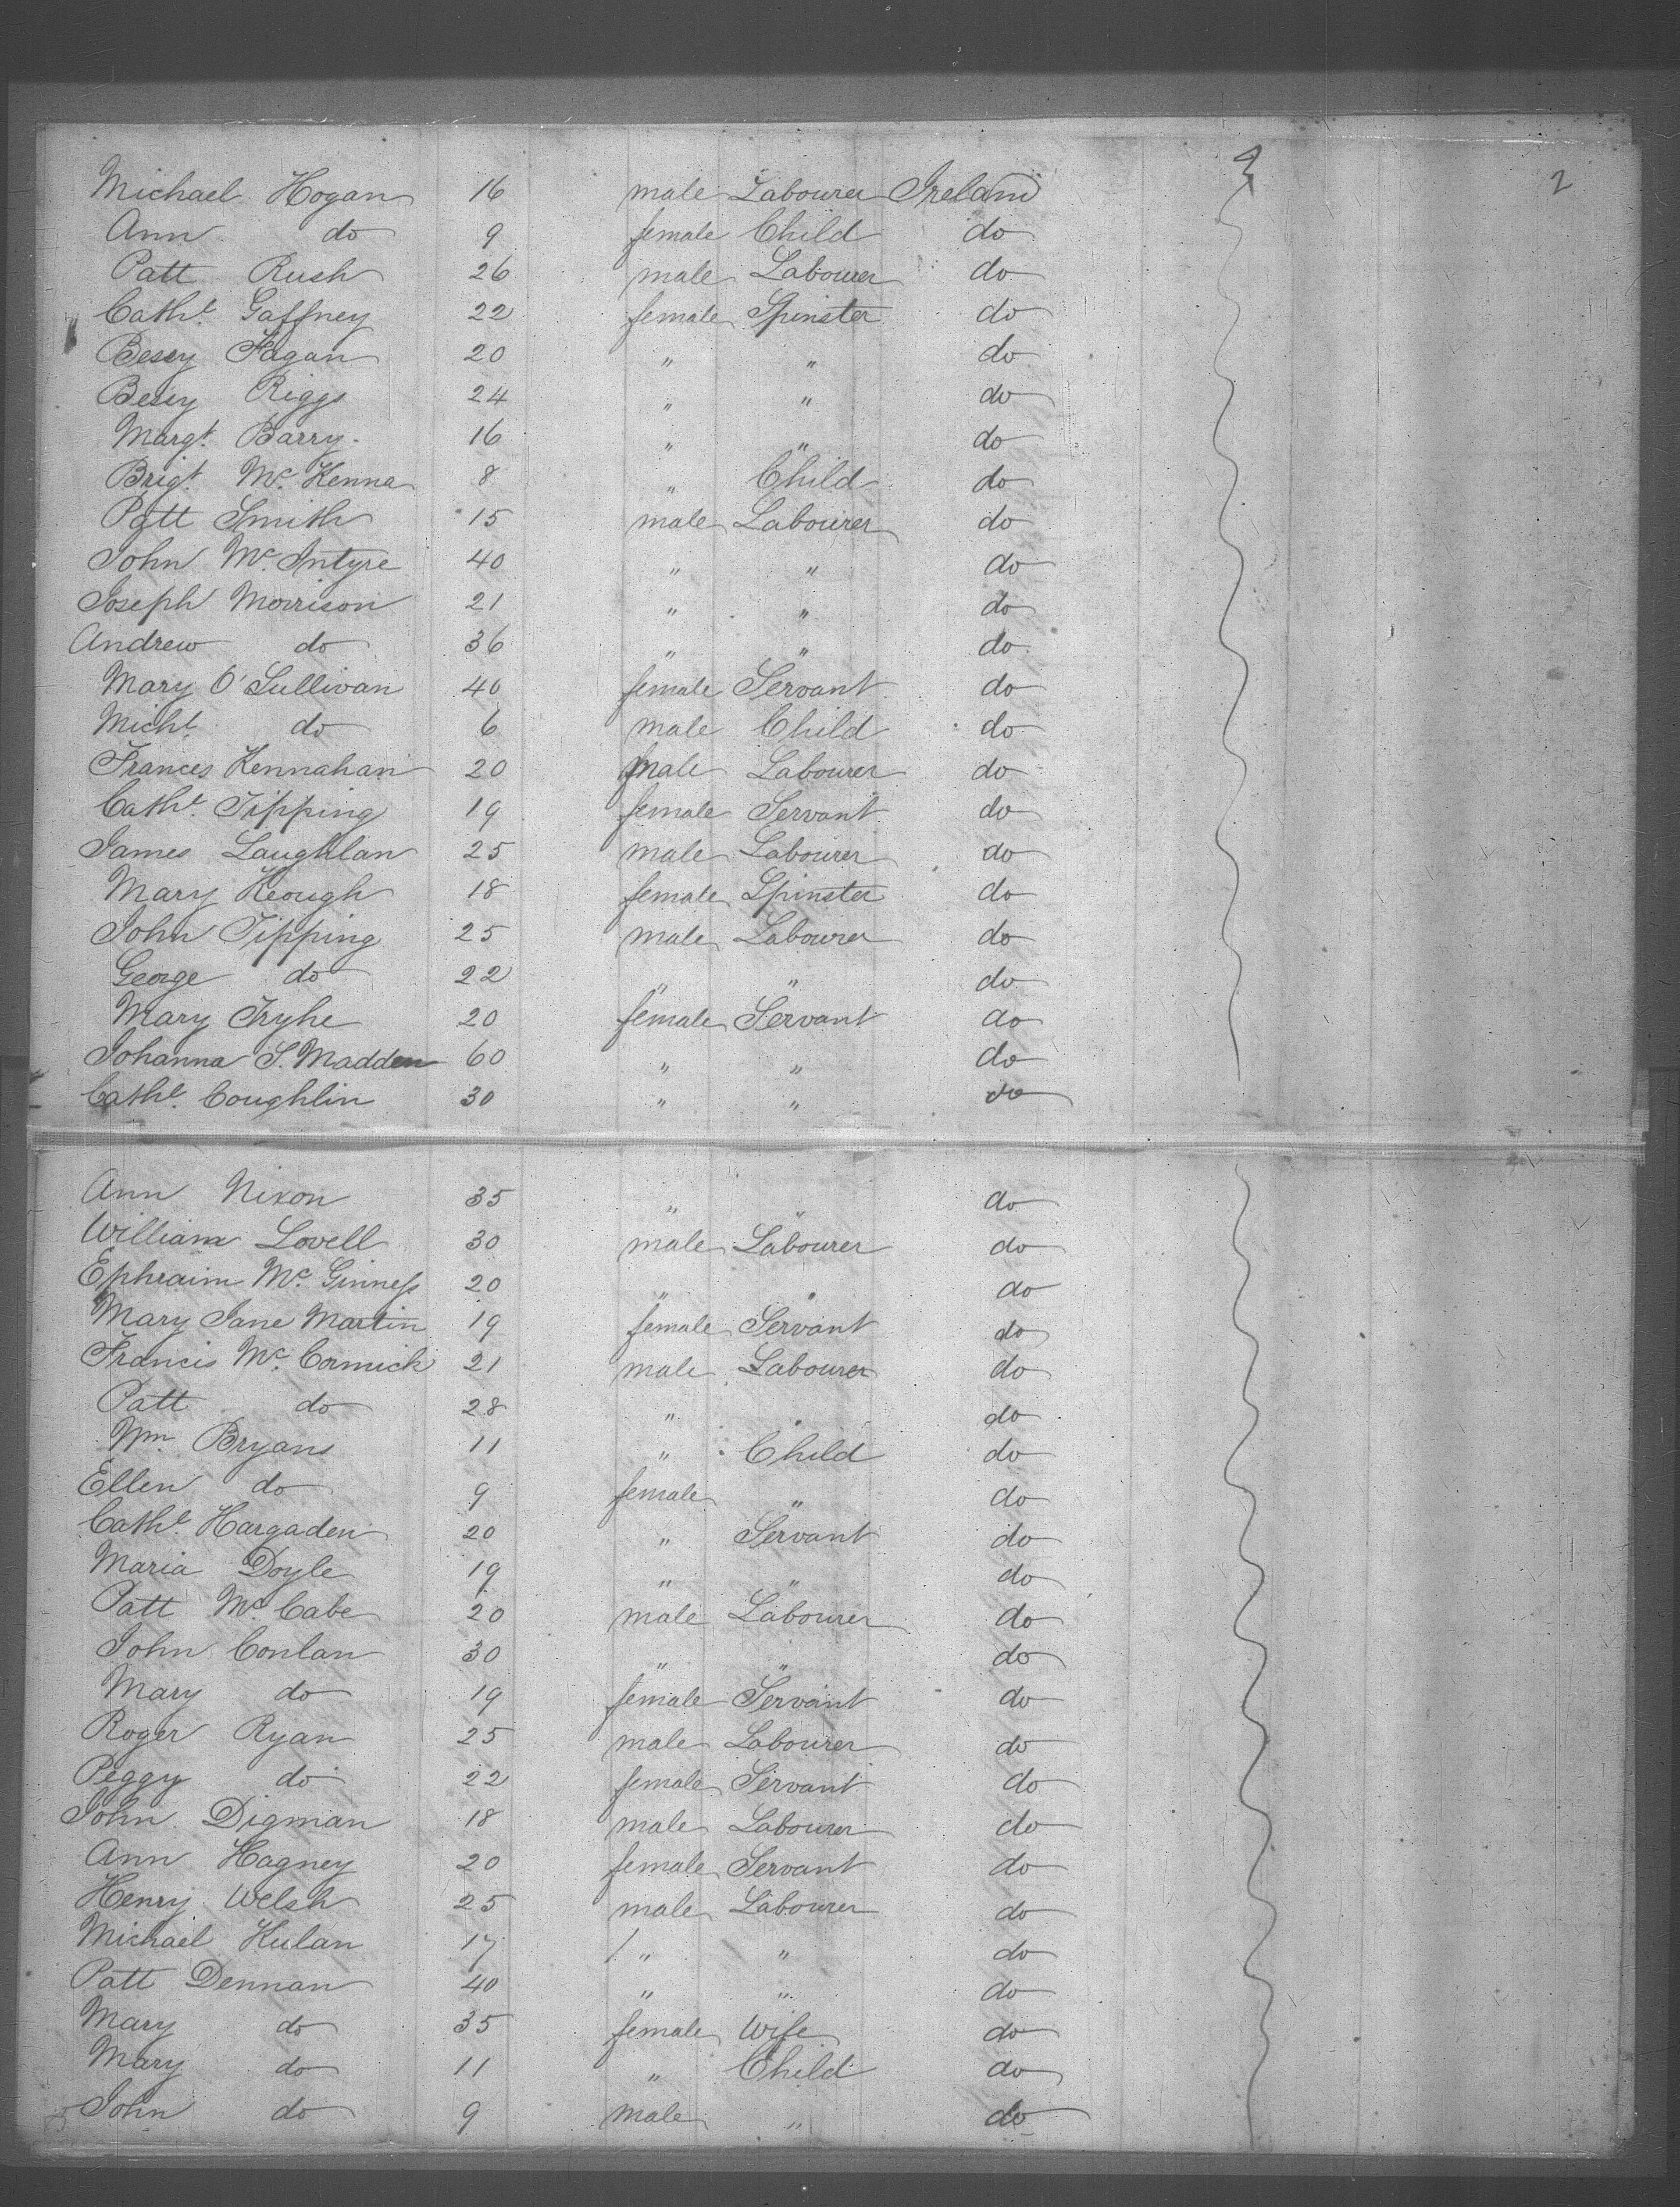 2
Michael Hogan 16 male Labourer Ireland
Ann do 9 female Child do
Patt Rush 26 male Labourer do
Cathe. Gaffney 22 female Spinster do
Bessy Fagan 20 " " do
Bessy Riggs 24 " " do
Margt. Barry 16 " " do
Brigt. Mc. Kenna 8 " Child do
Patt Smith 15 male Labourer do
John Mc. Intyre 40 " " do
Joseph Morrison 21 " " do
Andrew do 36 " " do
Mary O'Sullivan 40 female Servant do
Michl. do 6 male Child do
Frances Kennahan 20 male Labourer do
Cathe. Tipping 19 female Servant do
James Laughlan 25 male Labourer do
Mary Keough 18 female Spinster do
John Tipping 25 male Labourer do
George do 22 " " do
Mary Tryhe 20 female Servant do
Johanna S. Madden 60 " " do
Cathe. Coughlin 30 " " do
Ann Nixon 35 " " do
William Lovell 30 male Labourer do
Ephraim Mc. Ginness 20 " " do
Mary Jane Martin 19 female Servant do
Francis Mc. Cormick 21 male Labourer do
Patt do 28 " " do
Wm. Bryans 11 " Child do
Ellen do 9 female " do
Cathe. Hargaden 20 " Servant do
Maria Doyle 19 " " do
Patt Mc. Cabe 20 male Labourer do
John Conlan 30 " " do
Mary do 19 female Servant do
Roger Ryan 25 male Labourer do
Peggy do 22 female Servant do
John Digman 18 male Labourer do
Ann Hagney 20 female Servant do
Henry Welsh 25 male Labourer do
Michael Hulan 17 " " do
Patt Dennan 40 " " do
Mary do 35 female Wife do
Mary do 11 " Child do
John do 9 male " do